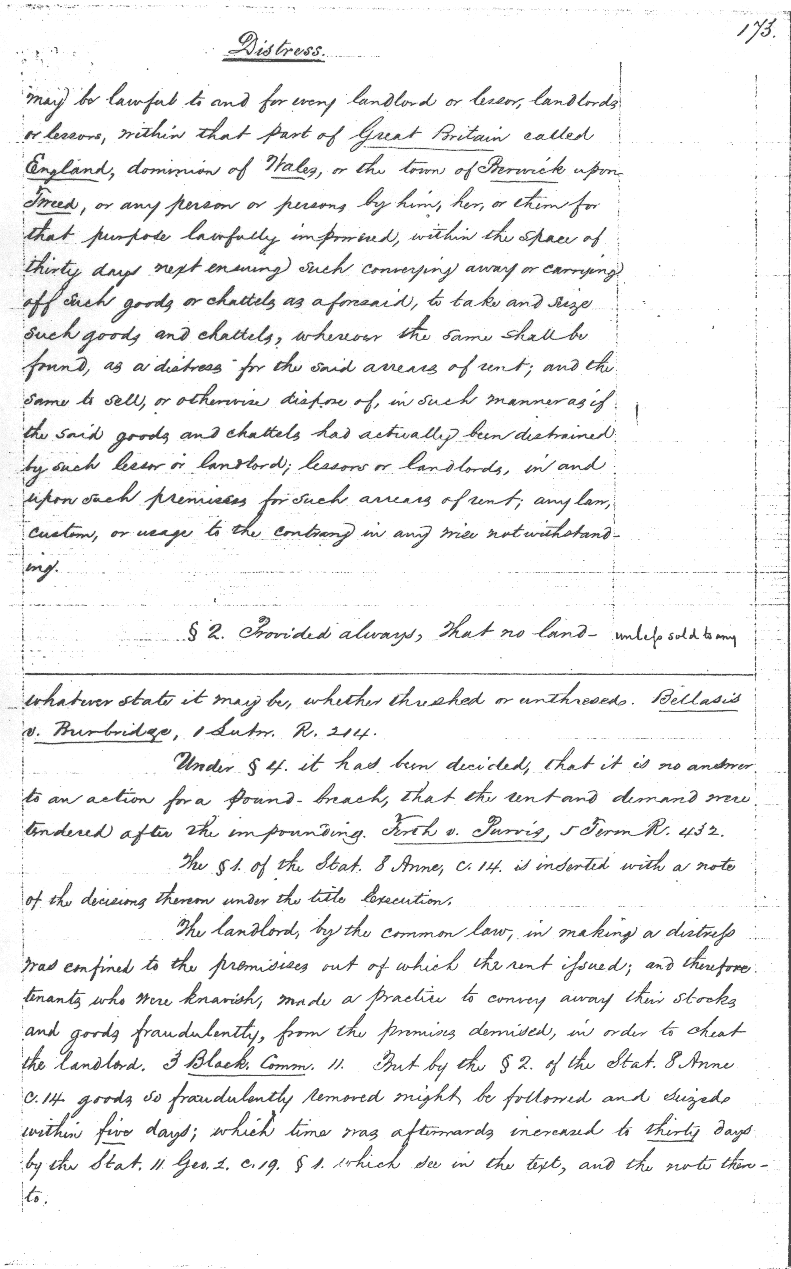 173.
Distress.
may be lawful to and for every landlord or lessor, landlords
or lessors, within that part of Great Britain called
England, dominion of Wales, or the town of Berwick upon
Tweed, or any person or persons by him, her, or them for
that purpose lawfully impowred, within the space of
thirty days next ensuing such conveying away or carrying
off such goods or chattels as aforesaid, to take and seize
such goods and chattels, wherever the same shall be
found, as a distress for the said arrears of rent; and the
same to sell, or otherwise dispose of, in such manner as if
the said goods and chattels had actually been distrained
by such lessor or landlord; lessors or landlords, in and
upon such premisses for such arrears of rent; any law,
custom, or usage to the contrary in any wise notwithstand-
ing.
§ 2. Provided always, That no land- unless sold to any
whatever state it may be, whether threshed or unthreseds. Bellasis
v. Burbridge, 1 Lutw. R. 214.
Under § 4. it has been decided, that it is no answer
to an action for a pound-breach, that the rent and demand were
tendered after the impounding. Firth v. Purvis, 5 Term R. 432.
The § 1. of the Stat. 8 Anne, c. 14. is inserted with a note
of the decisions thereon under the title Execution.
The landlord, by the common law, in making a distress
was confined to the premisises out of which the rent issued; and therefore
tenants who were knavish, made a practice to convey away their stocks
and goods fraudulently, from the premises demised, in order to cheat
the landlord. 3 Black. Comm. 11. But by the § 2. of the Stat. 8 Anne
c. 14 goods so fraudulently removed might be followed and seized
within five days; which time was afterwards increased to thirty days
by the Stat. 11 Geo. 2. c. 19. § 1. which see in the text, and the note there-
to.